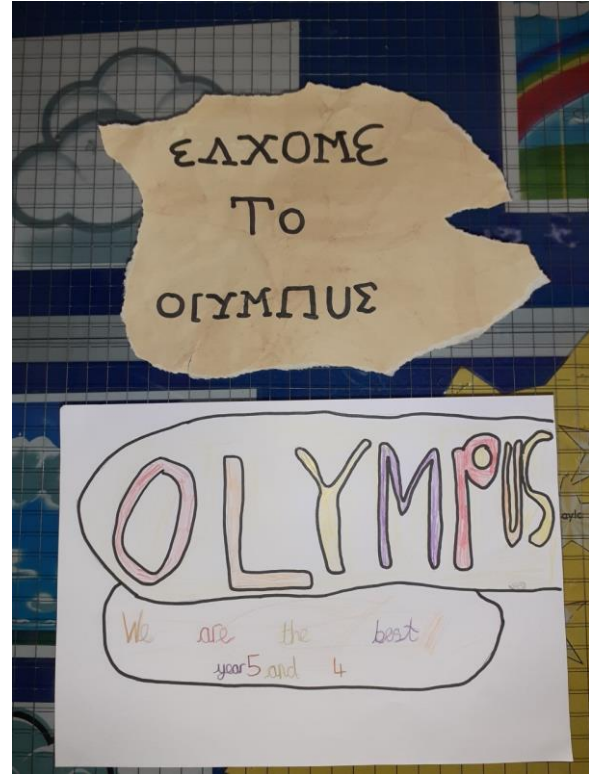 ΕΛΧΟΜΕ
Το
ΟΙΥΜΠUΣ
OLYMPUS
We are the best!!
year 5 and 4
ayle